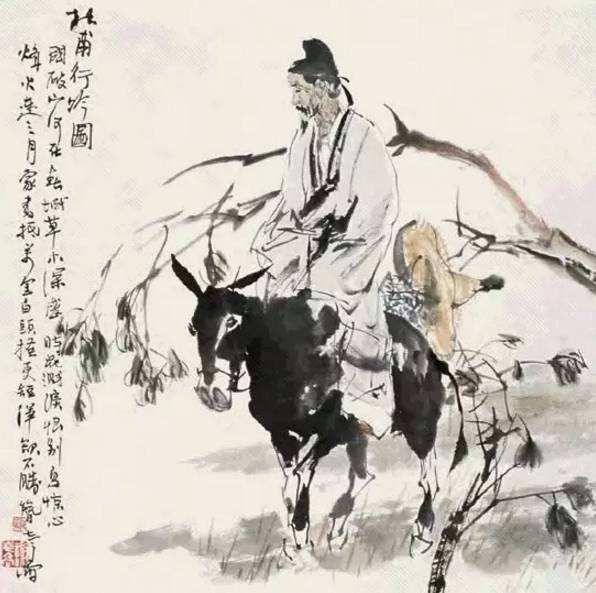 杜甫行吟圖
國破山河在春城草木深感時花濺淚恨別鳥驚心
烽火連三月家書抵萬金白頭搔更短渾欲不勝簪